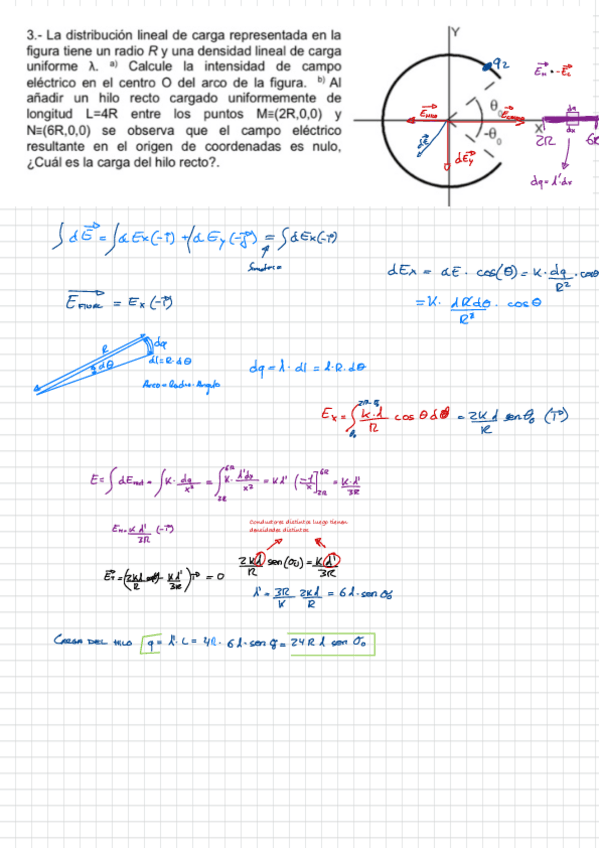 3.- La distribución lineal de carga representada en la
figura tiene un radio R y una densidad lineal de carga
uniforme λ. a) Calcule la intensidad de campo
eléctrico en el centro O del arco de la figura. b) Al
añadir un hilo recto cargado uniformemente de
longitud L=4R entre los puntos M≡(2R,0,0) y
N≡(6R,0,0) se observa que el campo eléctrico
resultante en el origen de coordenadas es nulo,
¿Cuál es la carga del hilo recto?.
Y
θ₀
-θ₀
X
dEy
dq
dx
2R
6R
dq = λ'dx
∫dE = ∫dEx(-i) + ∫dEy(-j) = ∫dEx(-i)
dEx = dE · cos(θ) = K · dq/R² · cosθ
= K · λRdθ/R² · cosθ
= Ex(-i)
R
dq
dl = R·dθ
dθ
Arco = Radio · Angulo
dq = λ · dl = λ·R·dθ
Ex = ∫ K·λ/R cosθ dθ = 2Kλ/R senθ₀ (i)
= ∫K·dq/x² = ∫ K·λ'dx/x² = Kλ' [-1/x] = K·λ'/3R
Conductores distintos luego tienen
densidades distintas
= 0
2Kλ/R sen(θ₀) = Kλ'/3R
λ' = 3R/K 2Kλ/R = 6λ·senθ₀
CARGA DEL HILO q = λ'·L = 4R·6λ·senθ₀ = 24Rλ senθ₀